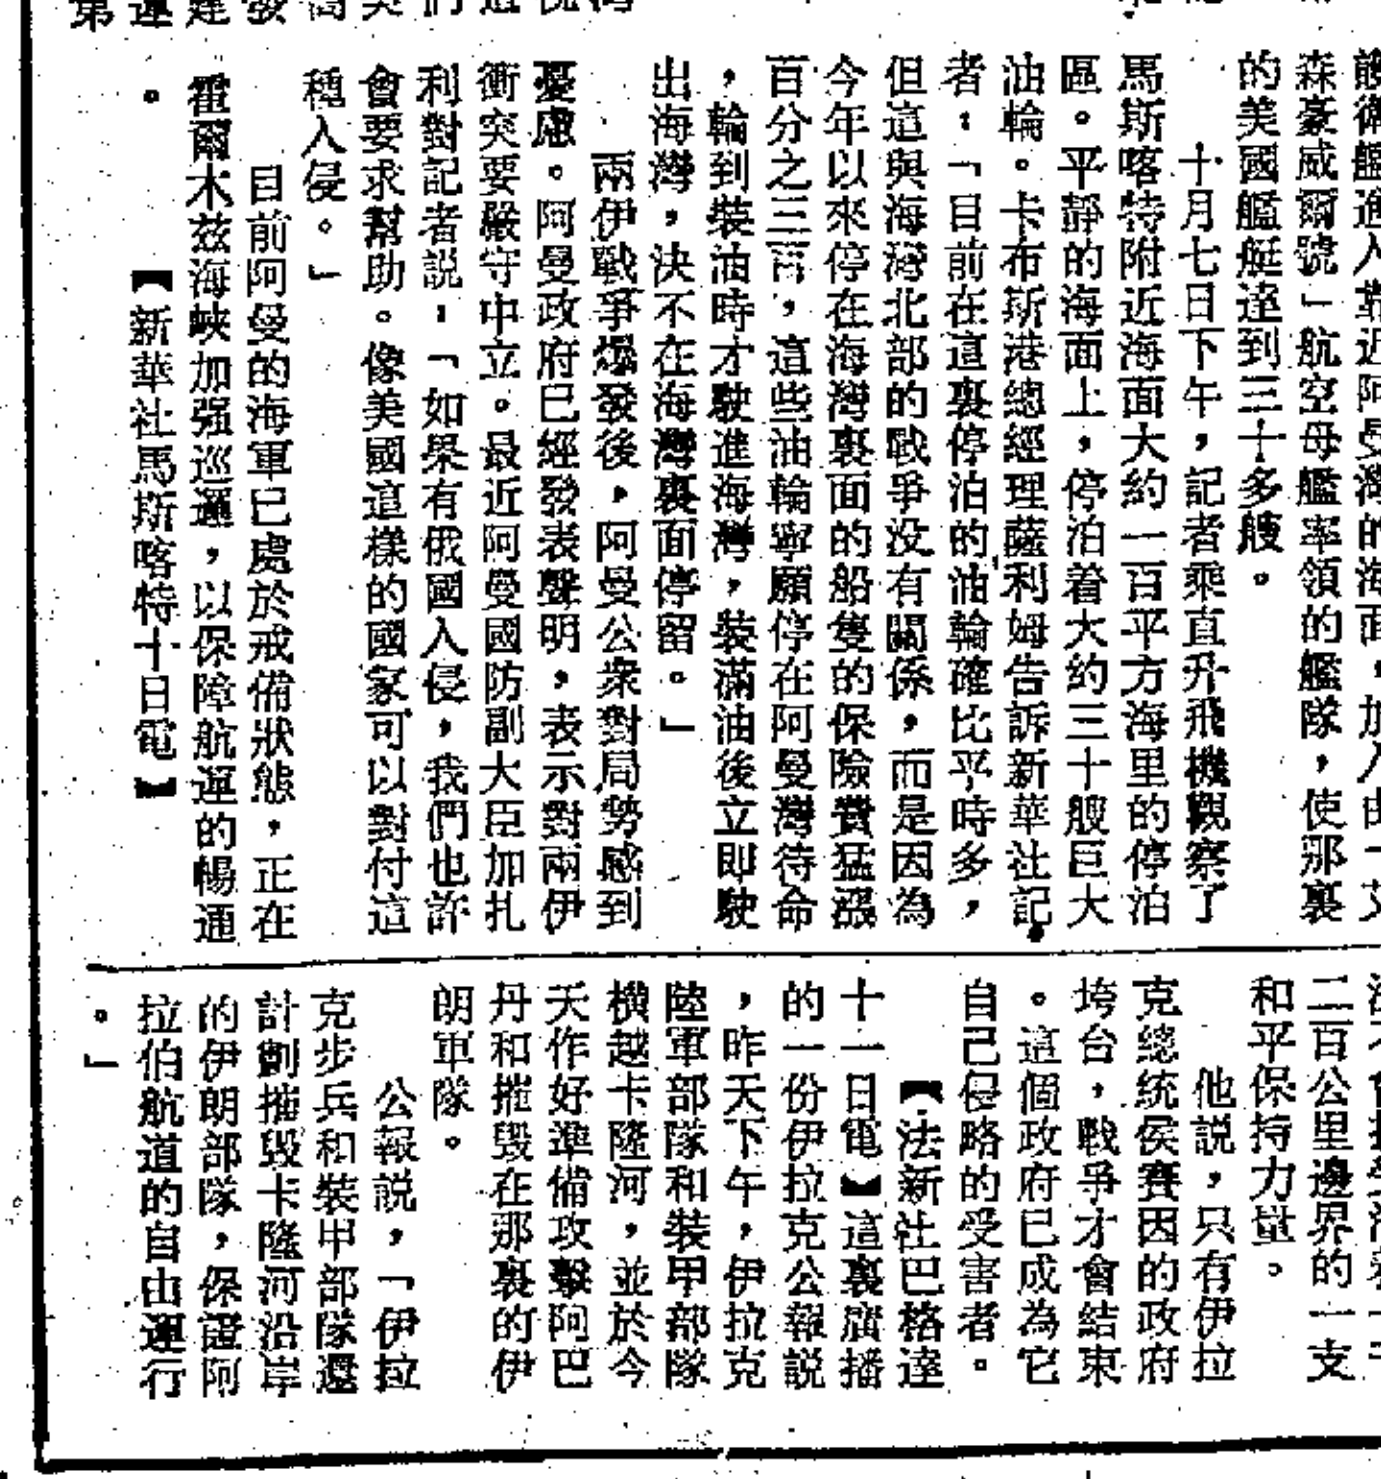 森豪威爾號」航空母艦率領的艦隊，使那裏
的美國艦艇達到三十多艘。
十月七日下午，記者乘直升飛機觀察了
馬斯喀特附近海面大約一百平方海里的停泊
區。平靜的海面上，停泊着大約三十艘巨大
油輪。卡布斯港總經理薩利姆告訴新華社記
者：「目前在這裏停泊的油輪確比平時多，
但這與海灣北部的戰爭没有關係，而是因為
今年以來停在海灣裏面的船隻的保險費猛漲
百分之三百，這些油輪寧願停在阿曼灣待命
，輪到裝油時才駛進海灣，裝滿油後立即駛
出海灣，決不在海灣裏面停留。」
兩伊戰爭爆發後，阿曼公衆對局勢感到
憂慮。阿曼政府已經發表聲明，表示對兩伊
衝突要嚴守中立。最近阿曼國防副大臣加扎
利對記者説，「如果有俄國入侵，我們也許
會要求幫助。像美國這樣的國家可以對付這
種入侵。」
目前阿曼的海軍已處於戒備狀態，正在
霍爾木兹海峽加强巡邏，以保障航運的暢通
。
【新華社馬斯喀特十日電】
二百公里邊界的一支
和平保持力量。
他説，只有伊拉
克總統侯賽因的政府
垮台，戰爭才會結束
。這個政府已成為它
自己侵略的受害者。
【法新社巴格達
十一日電】這裏廣播
的一份伊拉克公報説
，昨天下午，伊拉克
陸軍部隊和裝甲部隊
橫越卡隆河，並於今
天作好準備攻擊阿巴
丹和摧毀在那裏的伊
朗軍隊。
公報説，「伊拉
克步兵和裝甲部隊還
計劃摧毀卡隆河沿岸
的伊朗部隊，保證阿
拉伯航道的自由運行
。」